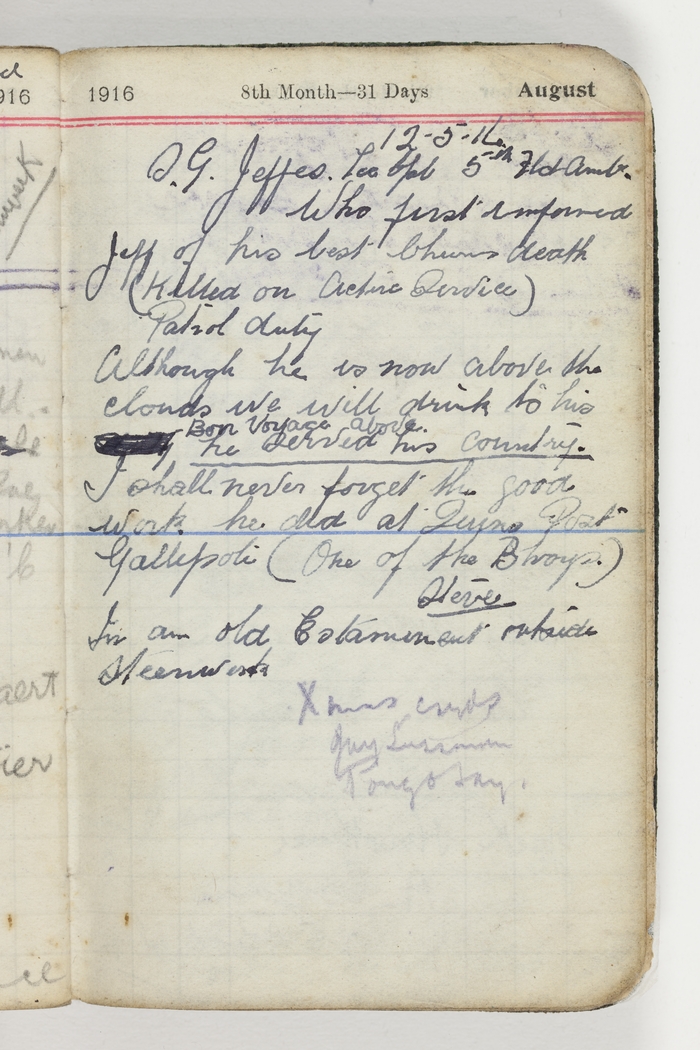 1916 8th Month—31 Days August
12-5-16
S.G. Jeffes. 5th Fld Amb.
Who first informed
Jeff of his best Chums death
(Killed on Active Service)
Patrol duty
Although he is now above the
clouds we will drink to his
Bon Voyage above.
he served his country.
I shall never forget the good
work he did at Quins Post
Gallipoli (One of the Bhoys.)
Steve
In an old Estaminent outside
Steenwerk
Xmas cards
Guy
916